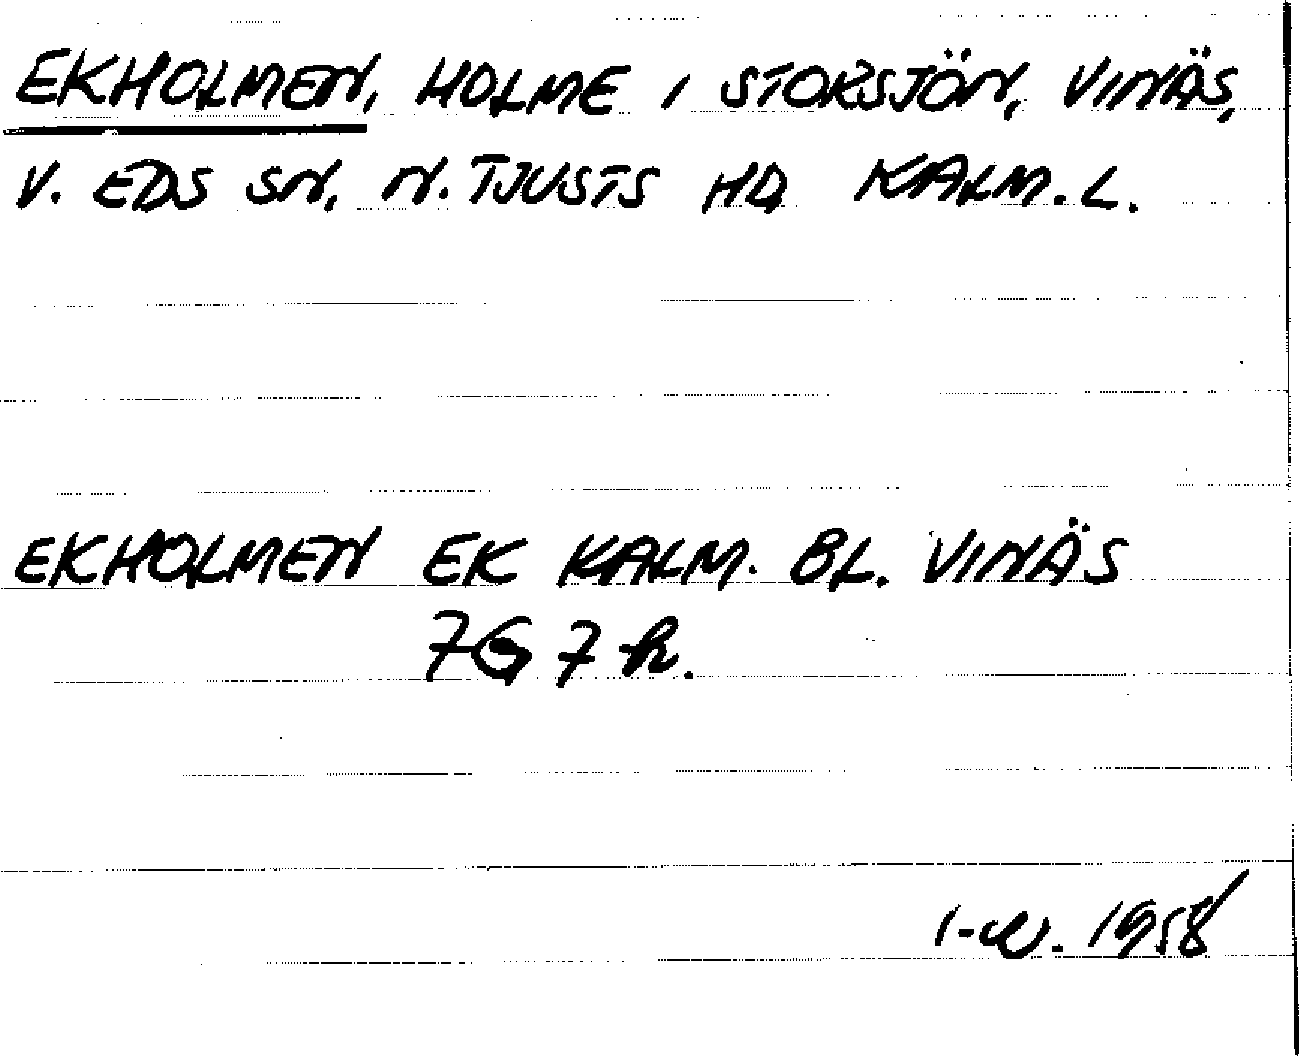 EKHOLMEN, HOLME I STORSJÖN, VINÄS,
V. EDS SN, N. TJUSTS HD KALM. L.
EKHOLMEN EK KALM. BL. VINÄS
7G 7h.
1958